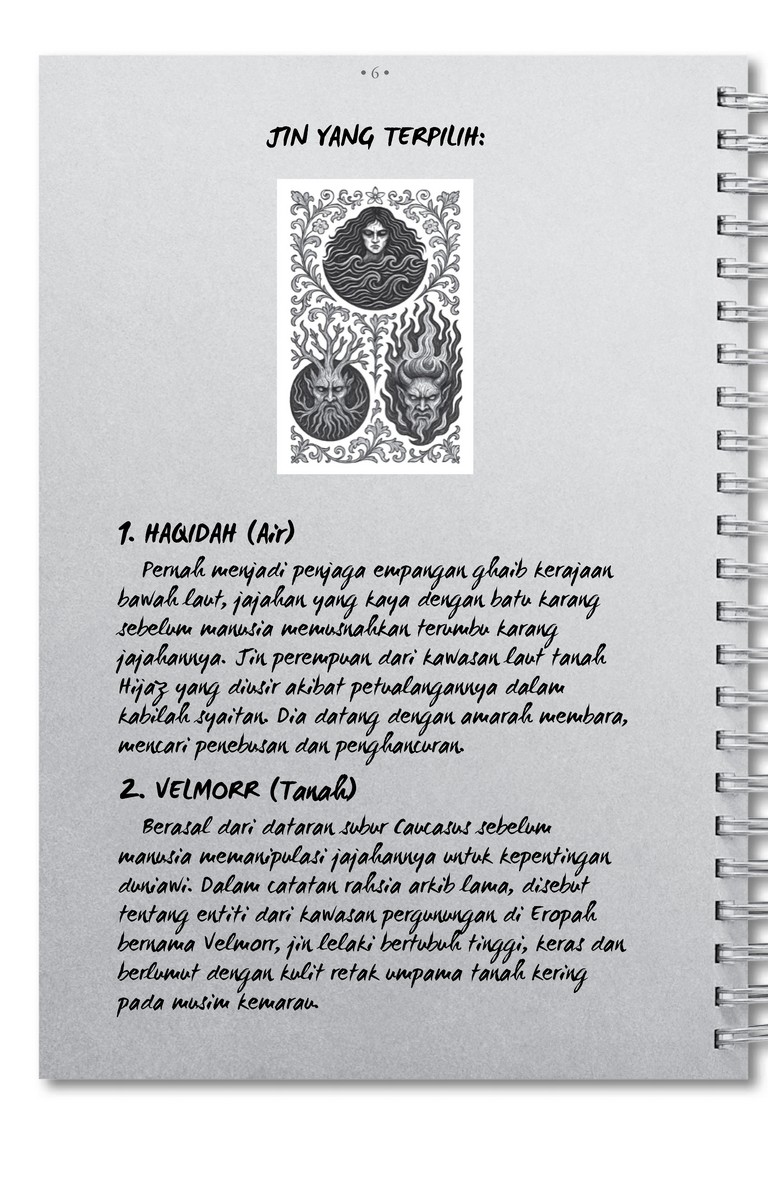 • 6 •
JIN YANG TERPILIH:
1. HAQIDAH (Air)
Pernah menjadi penjaga empangan ghaib kerajaan
bawah laut, jajahan yang kaya dengan batu karang
sebelum manusia memusnahkan terumbu karang
jajahannya. Jin perempuan dari kawasan laut tanah
Hijaz yang diusir akibat petualangannya dalam
kabilah syaitan. Dia datang dengan amarah membara,
mencari penebusan dan penghancuran.
2. VELMORR (Tanah)
Berasal dari dataran subur Caucasus sebelum
manusia memanipulasi jajahannya untuk kepentingan
duniawi. Dalam catatan rahsia arkib lama, disebut
tentang entiti dari kawasan pergunungan di Eropah
bernama Velmorr, jin lelaki bertubuh tinggi, keras dan
berlumut dengan kulit retak umpama tanah kering
pada musim kemarau.